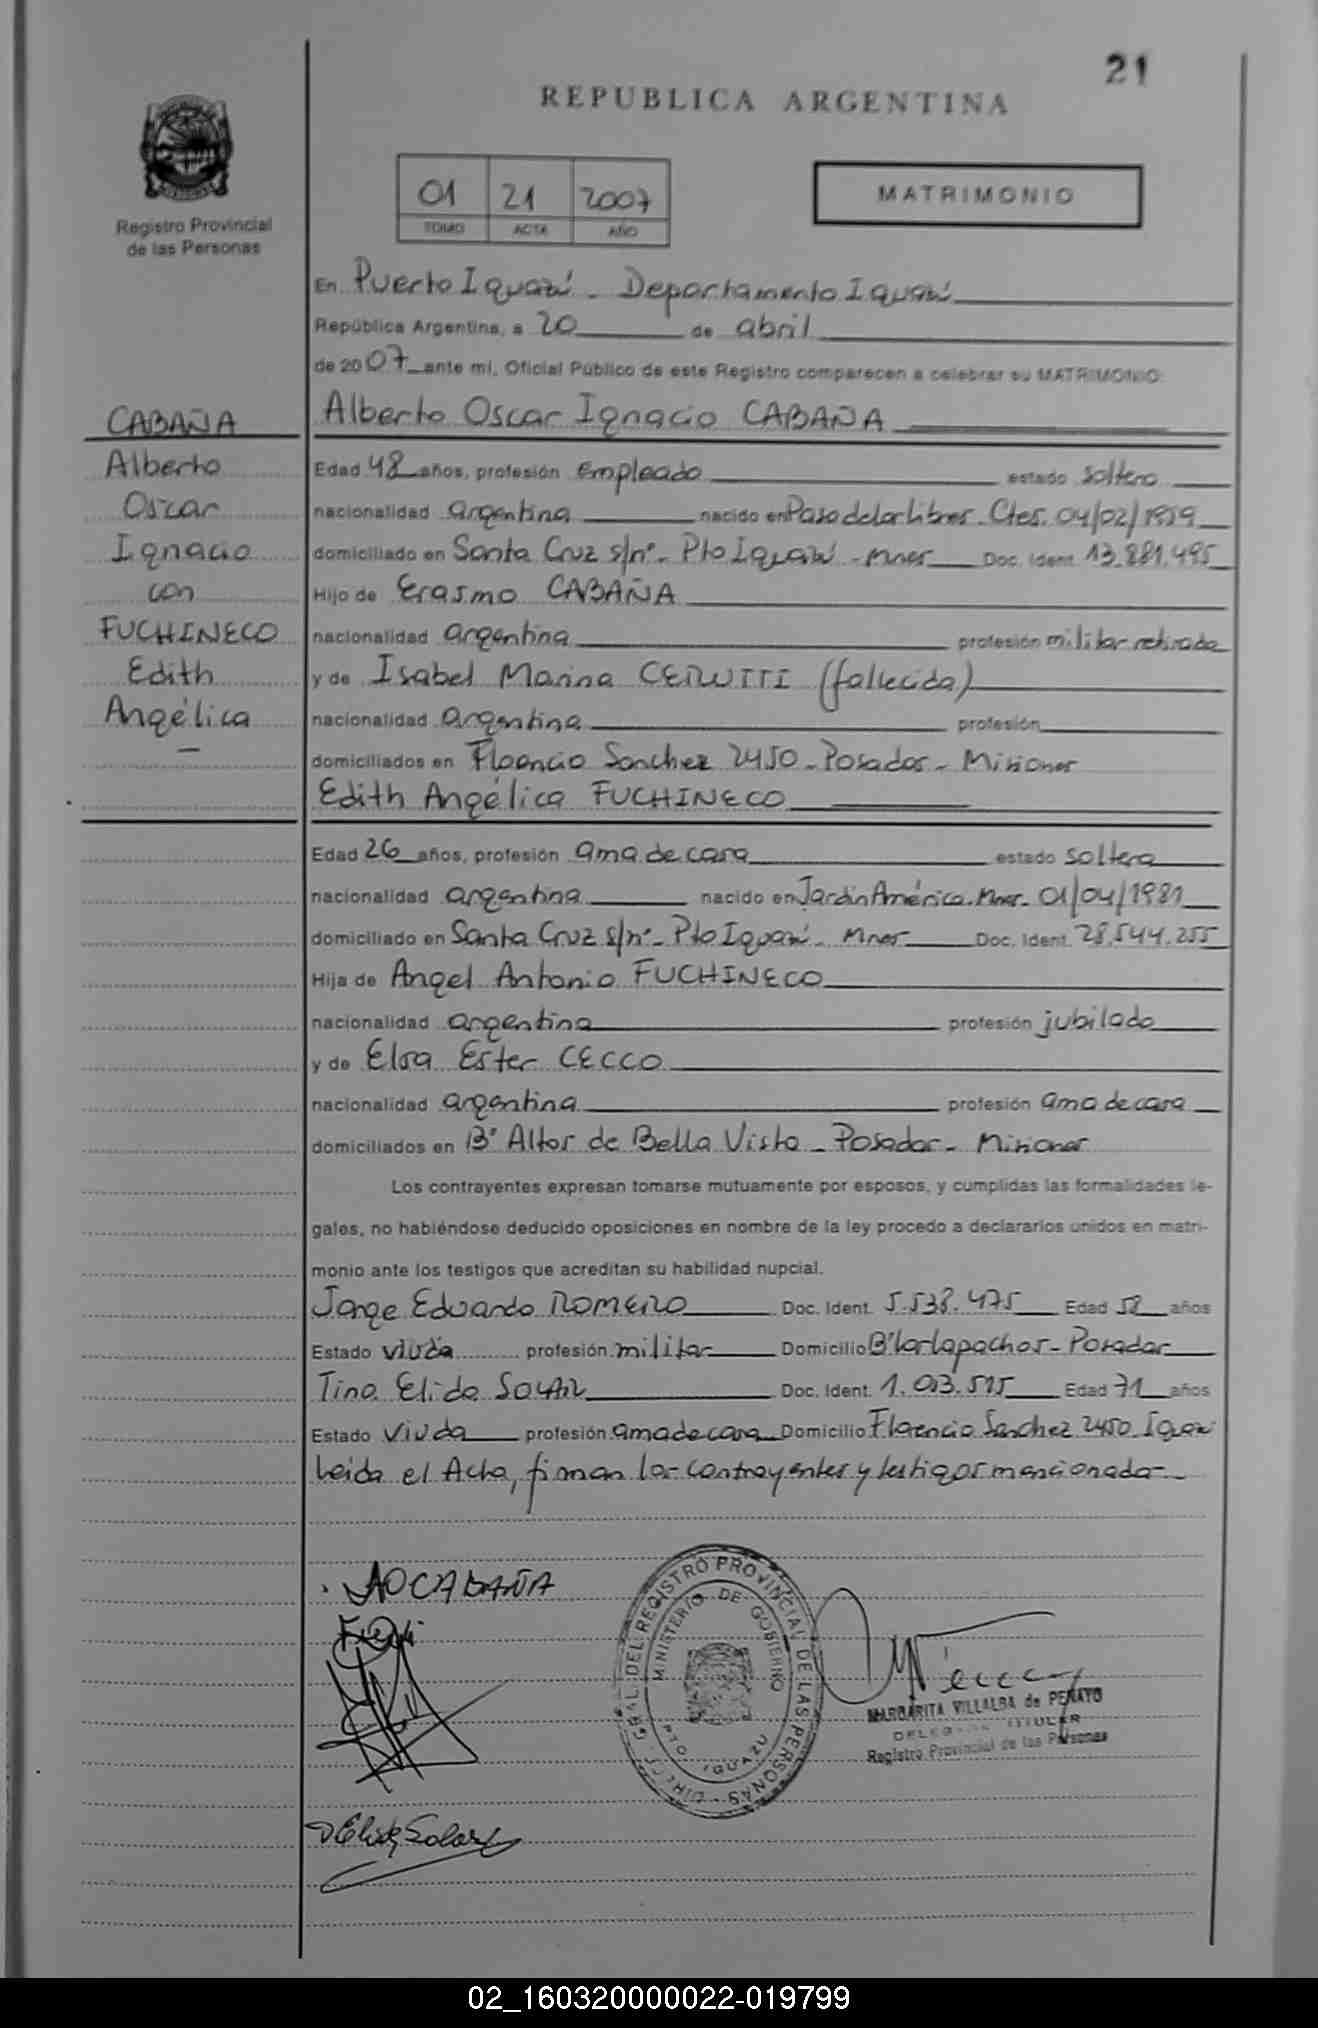 21
REPUBLICA ARGENTINA
Registro Provincial
de las Personas
01 21 2007
TOMO ACTA AÑO
MATRIMONIO
En Puerto Iguazú - Departamento Iguazú
República Argentina, a 20 de abril
de 2007 ante mí, Oficial Público de este Registro comparecen a celebrar su MATRIMONIO:
CABAÑA
Alberto
Oscar
Ignacio
con
FUCHINECO
Edith
Angélica
Alberto Oscar Ignacio CABAÑA
Edad 48 años, profesión empleado estado soltero
nacionalidad argentina nacido en Paso de los Libres - Ctes. 04/02/1959
domiciliado en Santa Cruz s/nº - Pto Iguazú - Mnes Doc. Ident. 13.881.495
Hijo de Erasmo CABAÑA
nacionalidad argentina profesión militar retirado
y de Isabel Marina CERUTTI (fallecida)
nacionalidad argentina profesión
domiciliados en Floencio Sanchez 2450 - Posadas - Misiones
Edith Angélica FUCHINECO
Edad 26 años, profesión ama de casa estado soltera
nacionalidad argentina nacido en Jardín América - Mnes - 01/04/1981
domiciliado en Santa Cruz s/nº - Pto Iguazú - Mnes Doc. Ident. 28.544.255
Hija de Angel Antonio FUCHINECO
nacionalidad argentina profesión jubilado
y de Elsa Ester CECCO
nacionalidad argentina profesión ama de casa
domiciliados en Bº Altos de Bella Vista - Posadas - Misiones
Los contrayentes expresan tomarse mutuamente por esposos, y cumplidas las formalidades le-
gales, no habiéndose deducido oposiciones en nombre de la ley procedo a declararlos unidos en matri-
monio ante los testigos que acreditan su habilidad nupcial.
Jorge Eduardo ROMERO Doc. Ident. 5.538.475 Edad 58 años
Estado profesión militar Domicilio Bº los lapachos - Posadas
Tina Elida SOLARI Doc. Ident. Edad 71 años
Estado Viuda profesión ama de casa Domicilio Florencio Sanchez 2450 Iguazú
Leida el Acta, firman los contrayentes y testigos mencionados -
AOCABAÑA
DIREC. GRAL. DEL REGISTRO PROVINCIAL DE LAS PERSONAS
MINISTERIO DE GOBIERNO
PTO IGUAZU
MARGARITA VILLALBA de PENAYO
DELEGADA TITULAR
Registro Provincial de las Personas
Elida Solari
02_160320000022-019799